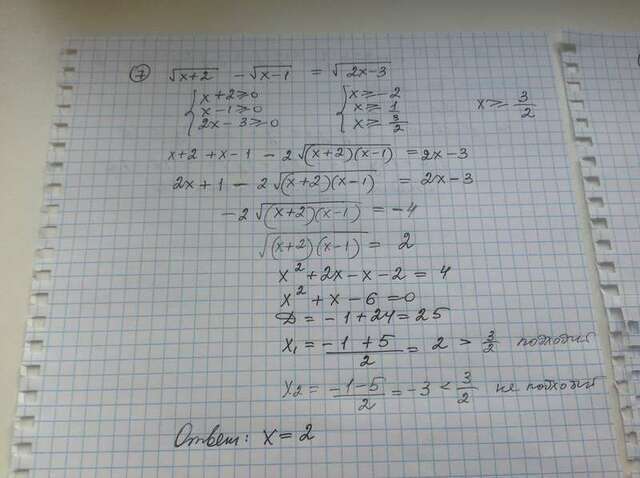 ⑦ √(x+2) - √(x-1) = √(2x-3)
{ x+2≥0 { x≥-2
x-1≥0 x≥1 x≥ 3/2
2x-3≥0 x≥ 3/2
x+2+x-1-2√((x+2)(x-1)) = 2x-3
2x+1-2√((x+2)(x-1)) = 2x-3
-2√((x+2)(x-1)) = -4
√((x+2)(x-1)) = 2
x²+2x-x-2=4
x²+x-6=0
D=-1+24=25
x₁= (-1+5)/2 = 2 > 3/2 подходит
x₂= (-1-5)/2 = -3 < 3/2 не подходит
Ответ: x=2